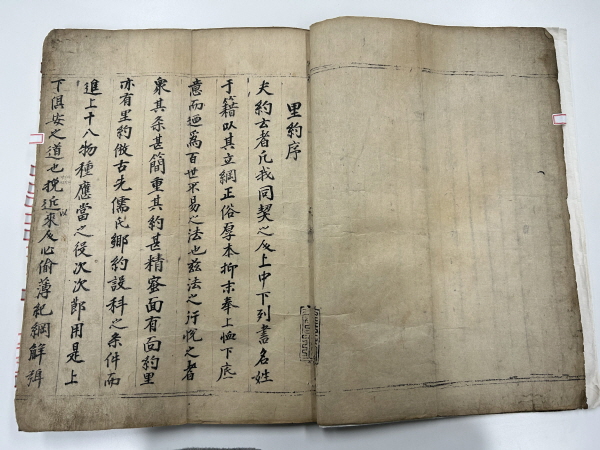 里約序
夫約玄者凡我同契之友上中下列書名姓
于籍以其立綱正俗厚本抑末奉上恤下底
意而迺爲百世不易之法也玆法之行悅之者
衆其条甚簡重其約甚精密面有面約里
亦有里約倣古先儒氏鄕約設科之条件而
進上十八物種應當之役次次卽用是上
下俱安之道也挽近以來反心偷薄紀綱解弛